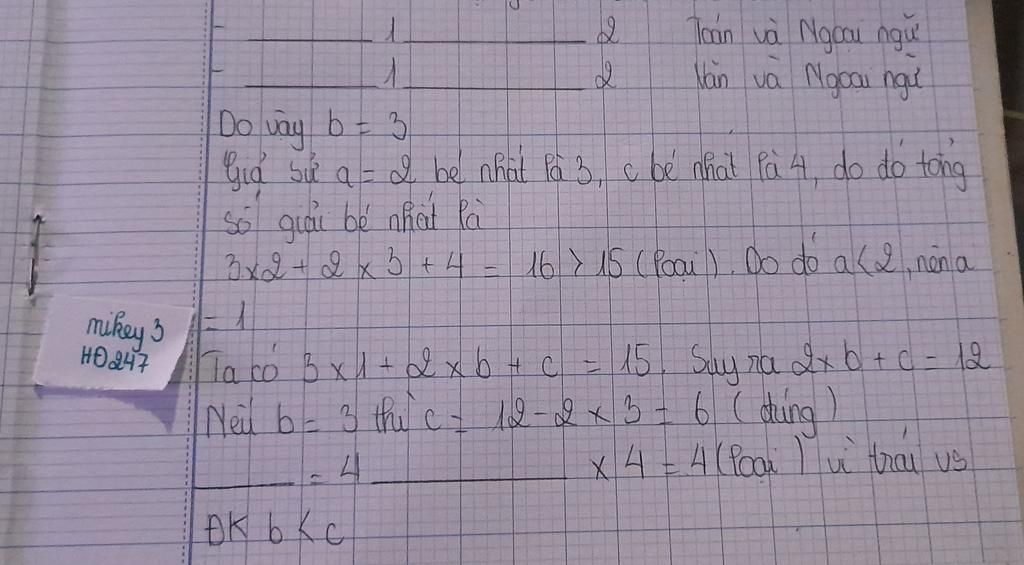 - ____ 1 ____ 2 Toán và Ngoại ngữ
- ____ 1 ____ 2 Văn và Ngoại ngữ
Do vậy b = 3
Giả sử a = 2 bé nhất là 3, c bé nhất là 4, do đó tổng
số giải bé nhất là
3x2 + 2 x 3 + 4 = 16 > 15 (loại). Do đó a < 2, nên a
= 1
mikey 3
HĐ247
Ta có 3 x 1 + 2 x b + c = 15. Suy ra 2 x b + c = 12
Nếu b = 3 thì c = 12 - 2 x 3 = 6 (đúng)
____ = 4 ____ x 4 = 4 (loại) vì trái vs
ĐK b < c